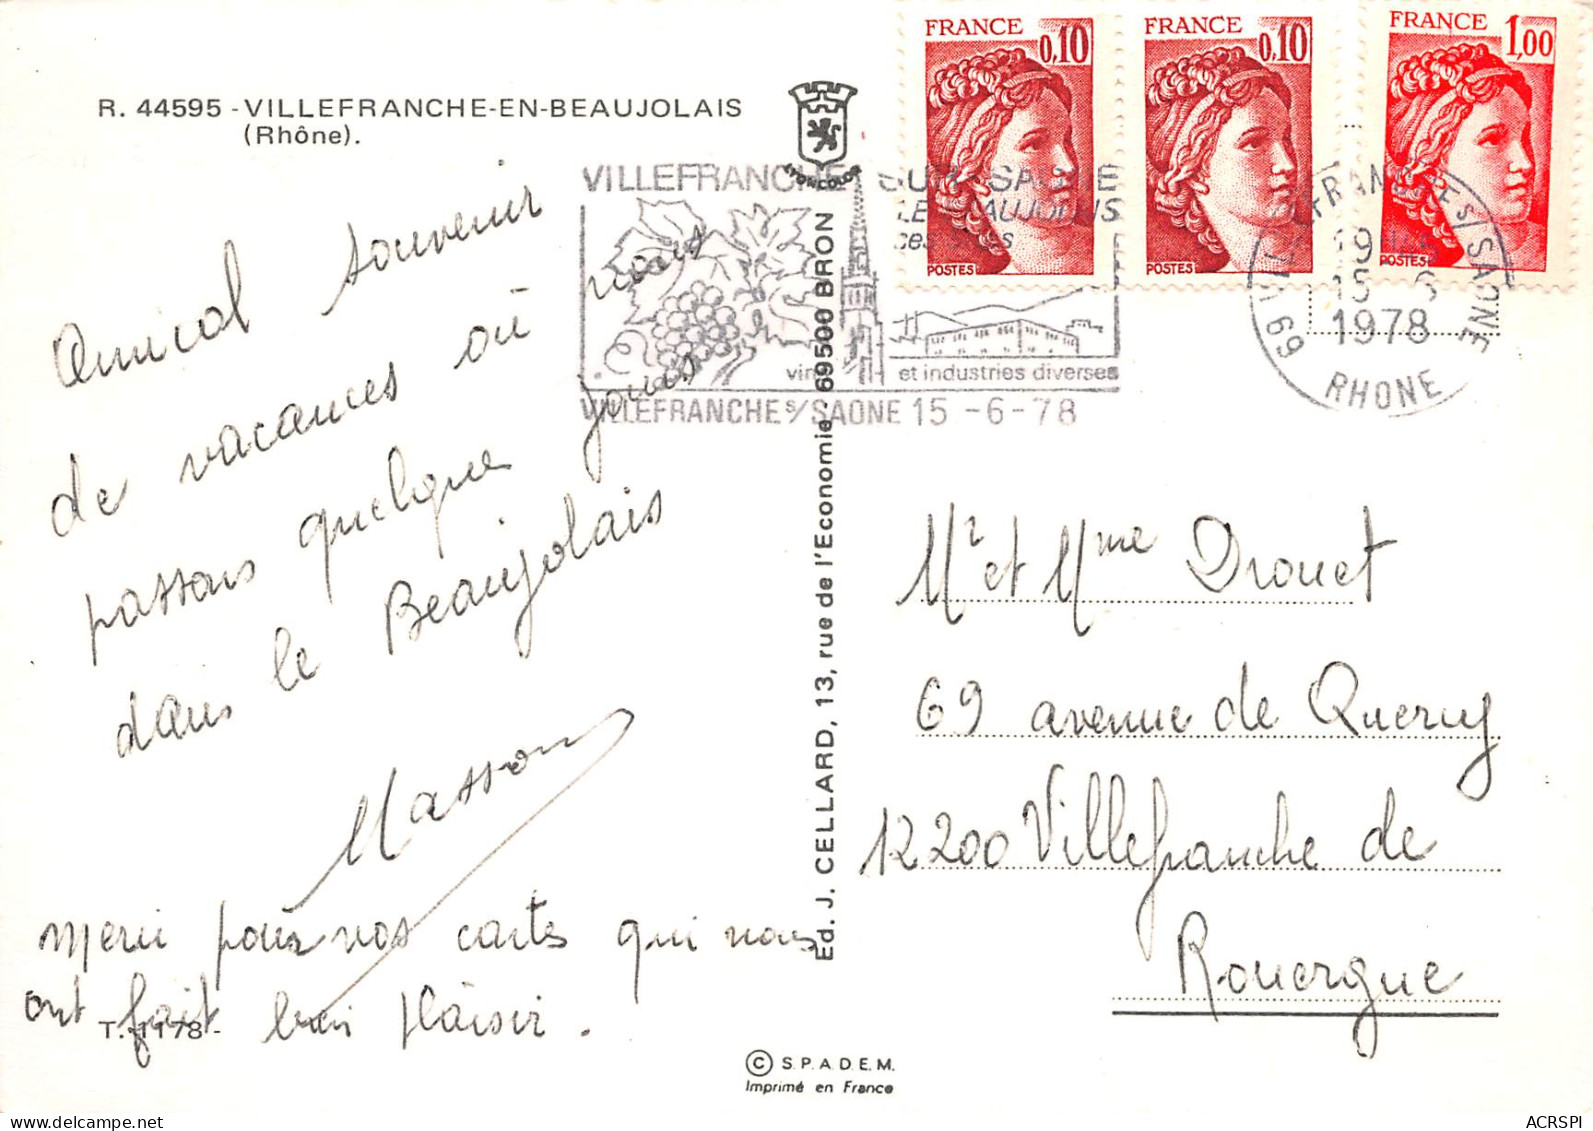 R. 44595 - VILLEFRANCHE-EN-BEAUJOLAIS
(Rhône).
LYONCOLOR
FRANCE
0,10
POSTES
FRANCE
0,10
POSTES
FRANCE
1,00
POSTES
VILLEFRANCHE SUR SAONE
BEAUJOLAIS
vin et industries diverses
VILLEFRANCHE S/SAONE 15 -6-78
VILLEFRANCHE S/ SAONE
19
15 6
1978
69 RHONE
Amical souvenir
de vacances où nous
passons quelques jours
dans le Beaujolais
Masson
Merci pour vos cartes qui nous
ont fait bien plaisir.
T. 1178 -
Ed. J. CELLARD, 13, rue de l'Economie 69500 BRON
Mr et Mme Drouet
69 avenue de Quercy
12200 Villefranche de
Rouergue
© S.P.A.D.E.M.
Imprimé en France
ACRSPI